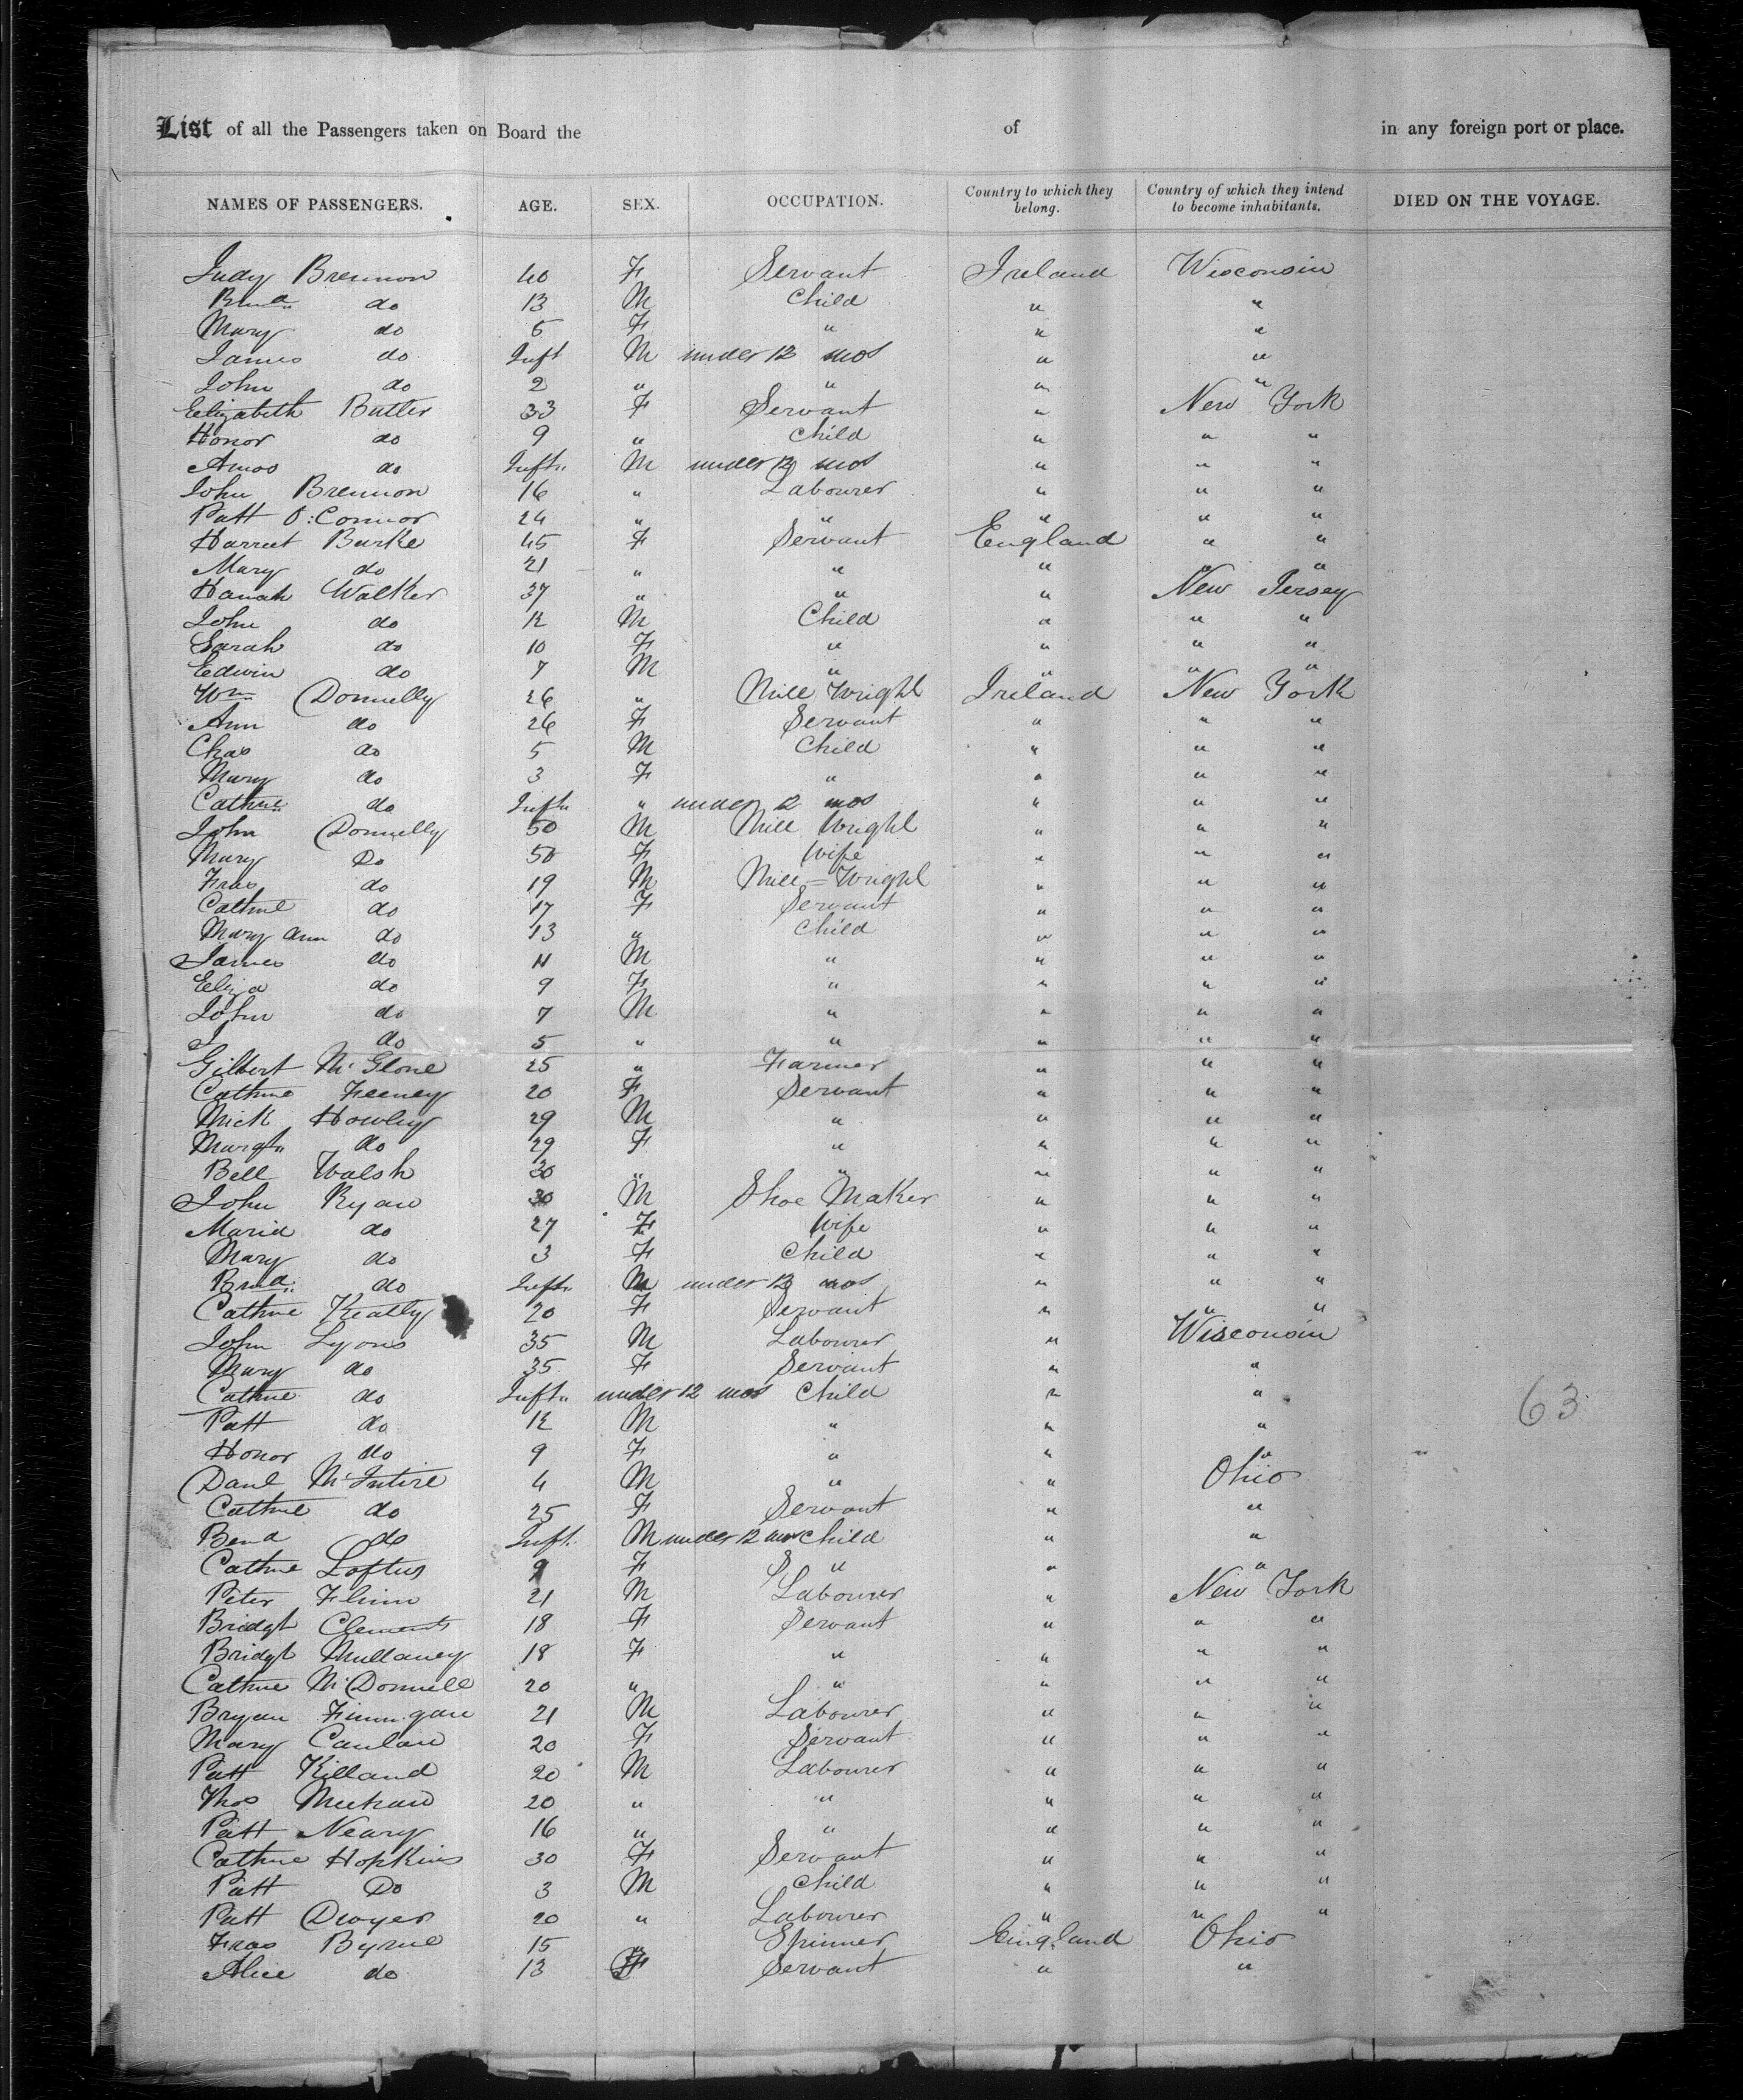 List of all the Passengers taken on Board the of in any foreign port or place.
NAMES OF PASSENGERS. AGE. SEX. OCCUPATION. Country to which they belong. Country of which they intend to become inhabitants. DIED ON THE VOYAGE.
Judy Brennon 40 F Servant Ireland Wisconsin
do 13 M Child " "
Mary do 5 F " " "
James do Inft M under 12 mos " "
John do 2 " " " "
Elizabeth Butler 33 F Servant " New York
Honor do 9 " Child " " "
Amos do Inft. M under 12 mos " " "
John Brennon 16 " Labourer " " "
Patt O:Connor 24 " " " " "
Harriet Burke 45 F Servant England " "
Mary do 21 " " " " "
Hanah Walker 37 " " " New Jersey
John do 12 M Child " " "
Sarah do 10 F " " " "
Edwin do 7 M " " " "
Wm Donnelly 26 " Mill Wright Ireland New York
Ann do 26 F Servant " " "
Chas do 5 M Child " " "
Mary do 3 F " " " "
Cathne do Inft. " under 12 mos " " "
John Donnelly 50 M Mill Wright " " "
Mary Do 50 F Wife " " "
Fras do 19 M Mill=Wright " " "
Cathne do 17 F Servant " " "
Mary Ann do 13 " Child " " "
James do 11 M " " " "
Eliza do 9 F " " " "
John do 7 M " " " "
do 5 " " " " "
Gilbert McGlone 25 " Farmer " " "
Cathne Feeney 20 F Servant " " "
Mick Howley 29 M " " " "
Margt. do 29 F " " " "
Bell Walsh 30 " " " " "
John Ryan 30 M Shoe Maker " " "
Maria do 27 F Wife " " "
Mary do 3 F Child " " "
do Inft. M under 12 mos " " "
Cathne Keatly 20 F Servant " " "
John Lyons 35 M Labourer " Wisconsin
Mary do 35 F Servant " "
Cathne do Inft. under 12 mos Child " "
Patt do 12 M " " "
Honor do 9 F " " " 63
Danl McIntire 4 M " " Ohio
Cathne do 25 F Servant " "
do Inft. M under 12 mos Child " "
Cathne Loftus 9 F " " "
Peter Flinn 21 M Labourer " New York
Bridgt Clements 18 F Servant " " "
Bridgt Mullaney 18 F " " " "
Cathne McDonnell 20 " " " " "
Bryan Finnigan 21 M Labourer " " "
Mary Canlan 20 F Servant " " "
Patt Killand 20 M Labourer " " "
Thos Meehan 20 " " " " "
Patt Neary 16 " " " " "
Cathne Hopkins 30 F Servant " " "
Patt Do 3 M Child " " "
Patt Dwyer 20 " Labourer " " "
Fras Byrne 15 " Spinner England Ohio
Alice do 13 F Servant " "